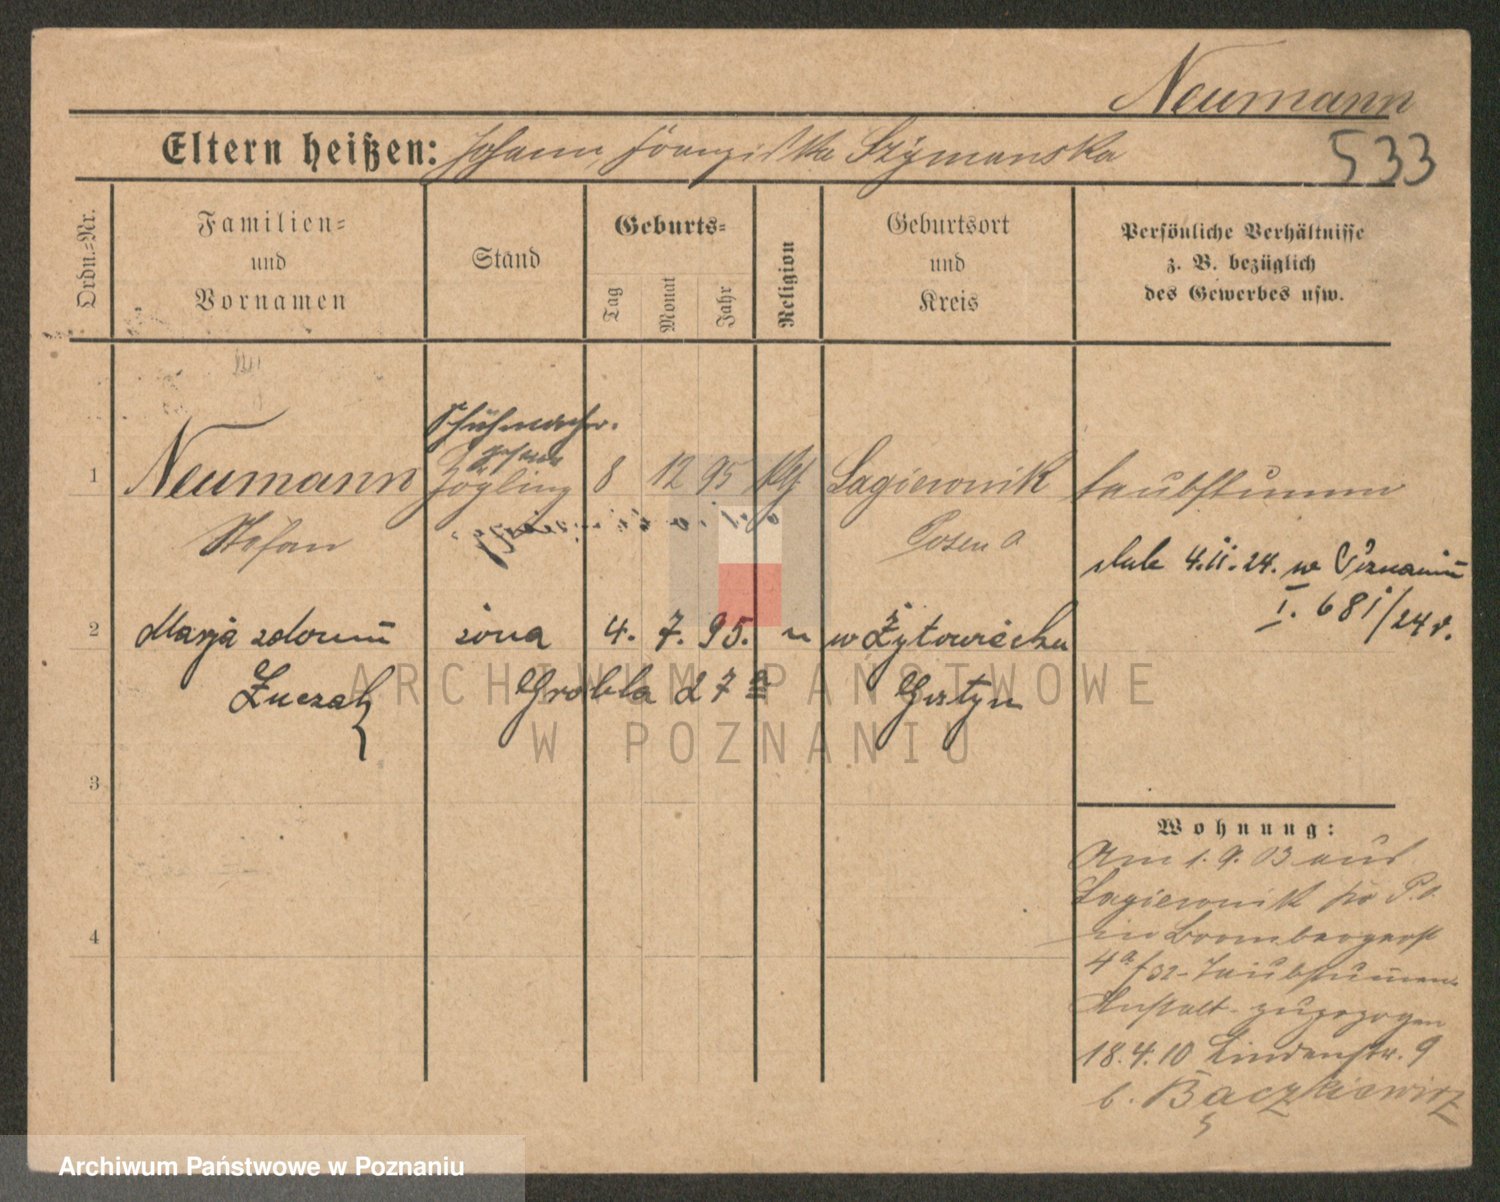 Neumann
533
Eltern heißen: Johann, Franziska Szymanska
Ordn.-Nr.
Familien- und Vornamen
Stand
Geburts-
Tag
Monat
Jahr
Religion
Geburtsort und Kreis
Persönliche Verhältnisse
z. B. bezüglich
des Gewerbes usw.
Schuhmacher.
1 Neumann Zögling 8 12 95 kth Lagiewnik taubstumm
Stefan Posen O
ślub 4.II.24. w Poznaniu
I. 681/24 r.
2 Marja z domu żona 4. 7. 95. " w Żytowiecku
Żuczak Grobla 27a Gostyn
3
4
Wohnung:
Am 1. 9. 03 aus
Lagiewnik Kr P. O.
in Brombergerst
4a/32 - Taubstummen-
Anstalt zugezogen
18. 4. 10 Lindenstr. 9
b. Bączkiewicz
ARCHIWUM PAŃSTWOWE
W POZNANIU
Archiwum Państwowe w Poznaniu